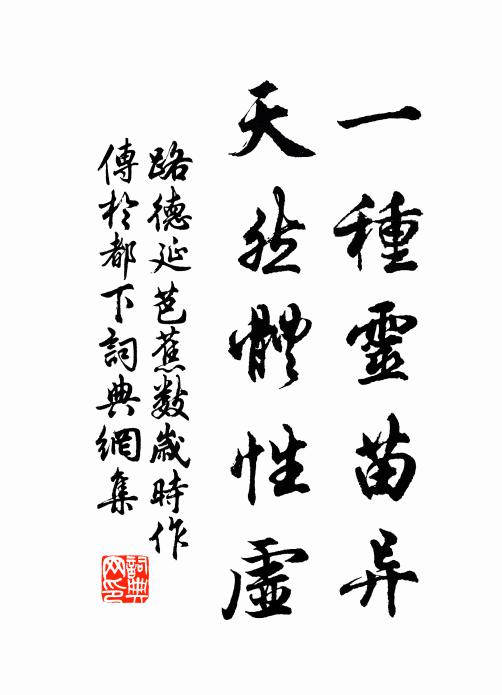 一種靈苗异
天然體性虛
路德延芭蕉數歲時作
傳於都下詞典網集
詞典
网印